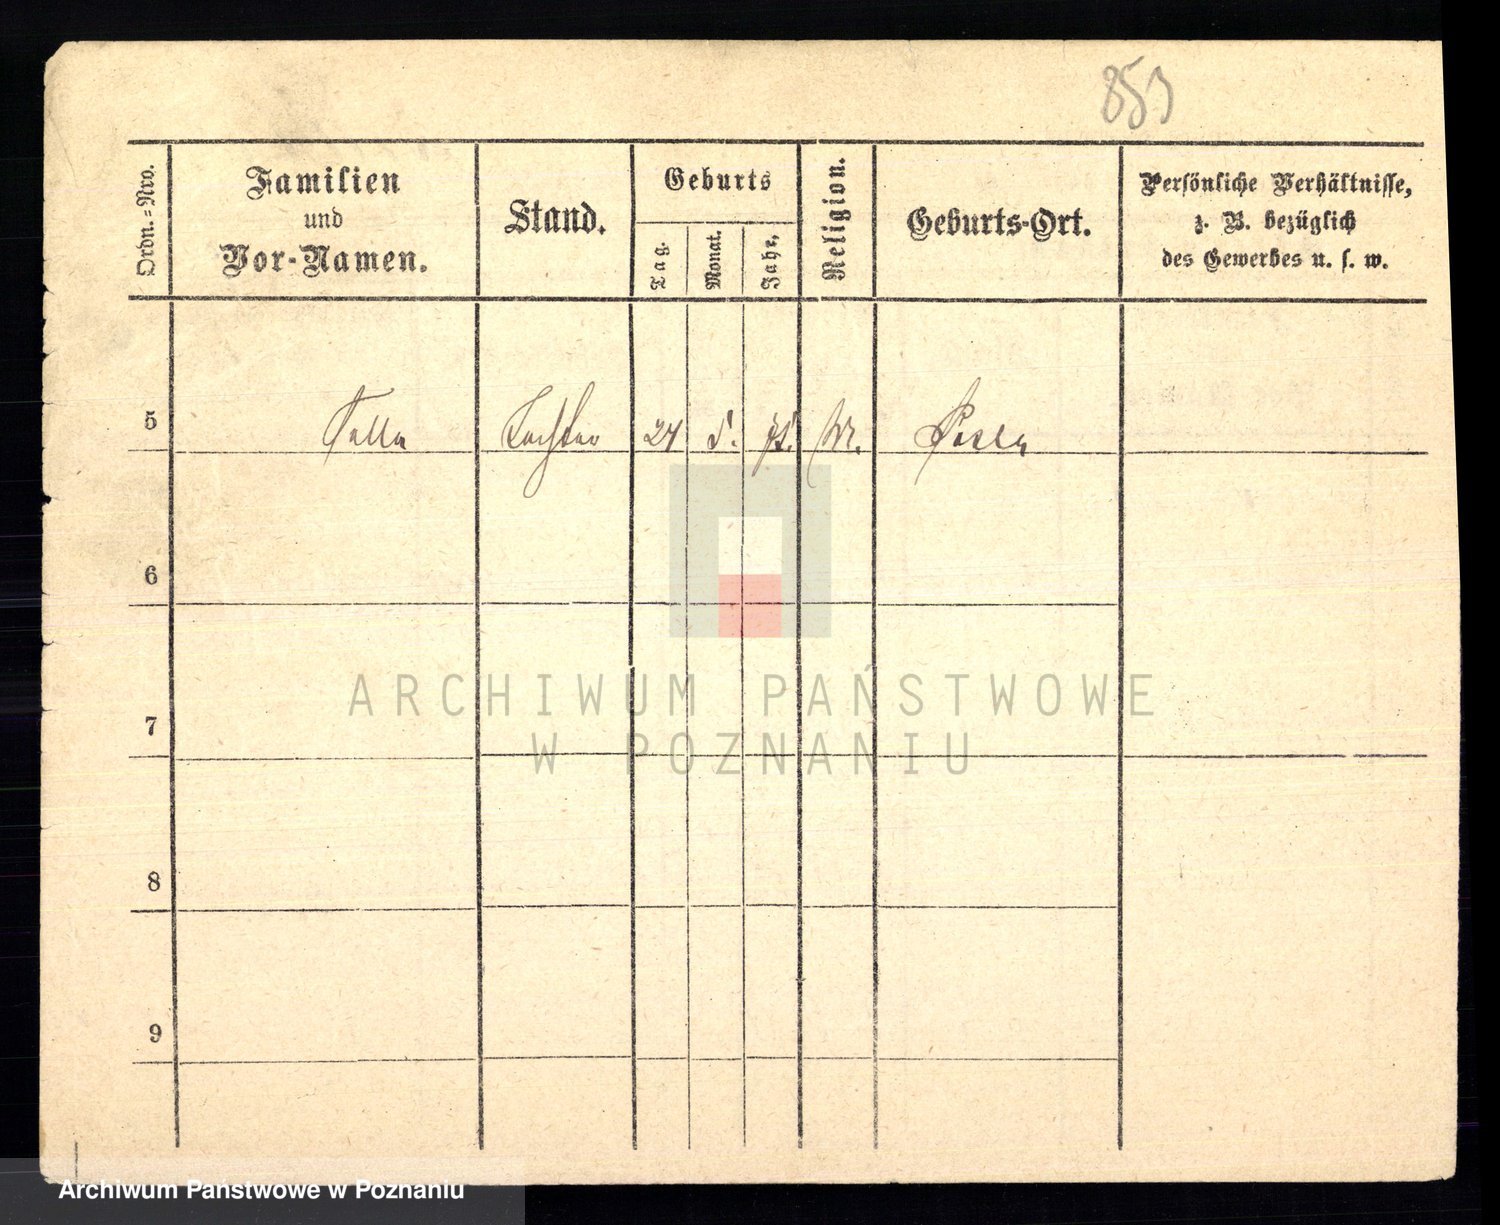 853
Ordn.=Nro.
Familien
und
Vor-Namen.
Stand.
Geburts
Tag.
Monat.
Jahr.
Religion.
Geburts-Ort.
Persönliche Verhältnisse,
z. B. bezüglich
des Gewerbes u. s. w.
5 Tochter 24 5. 75.
6
7
8
9
ARCHIWUM PAŃSTWOWE
W POZNANIU
Archiwum Państwowe w Poznaniu